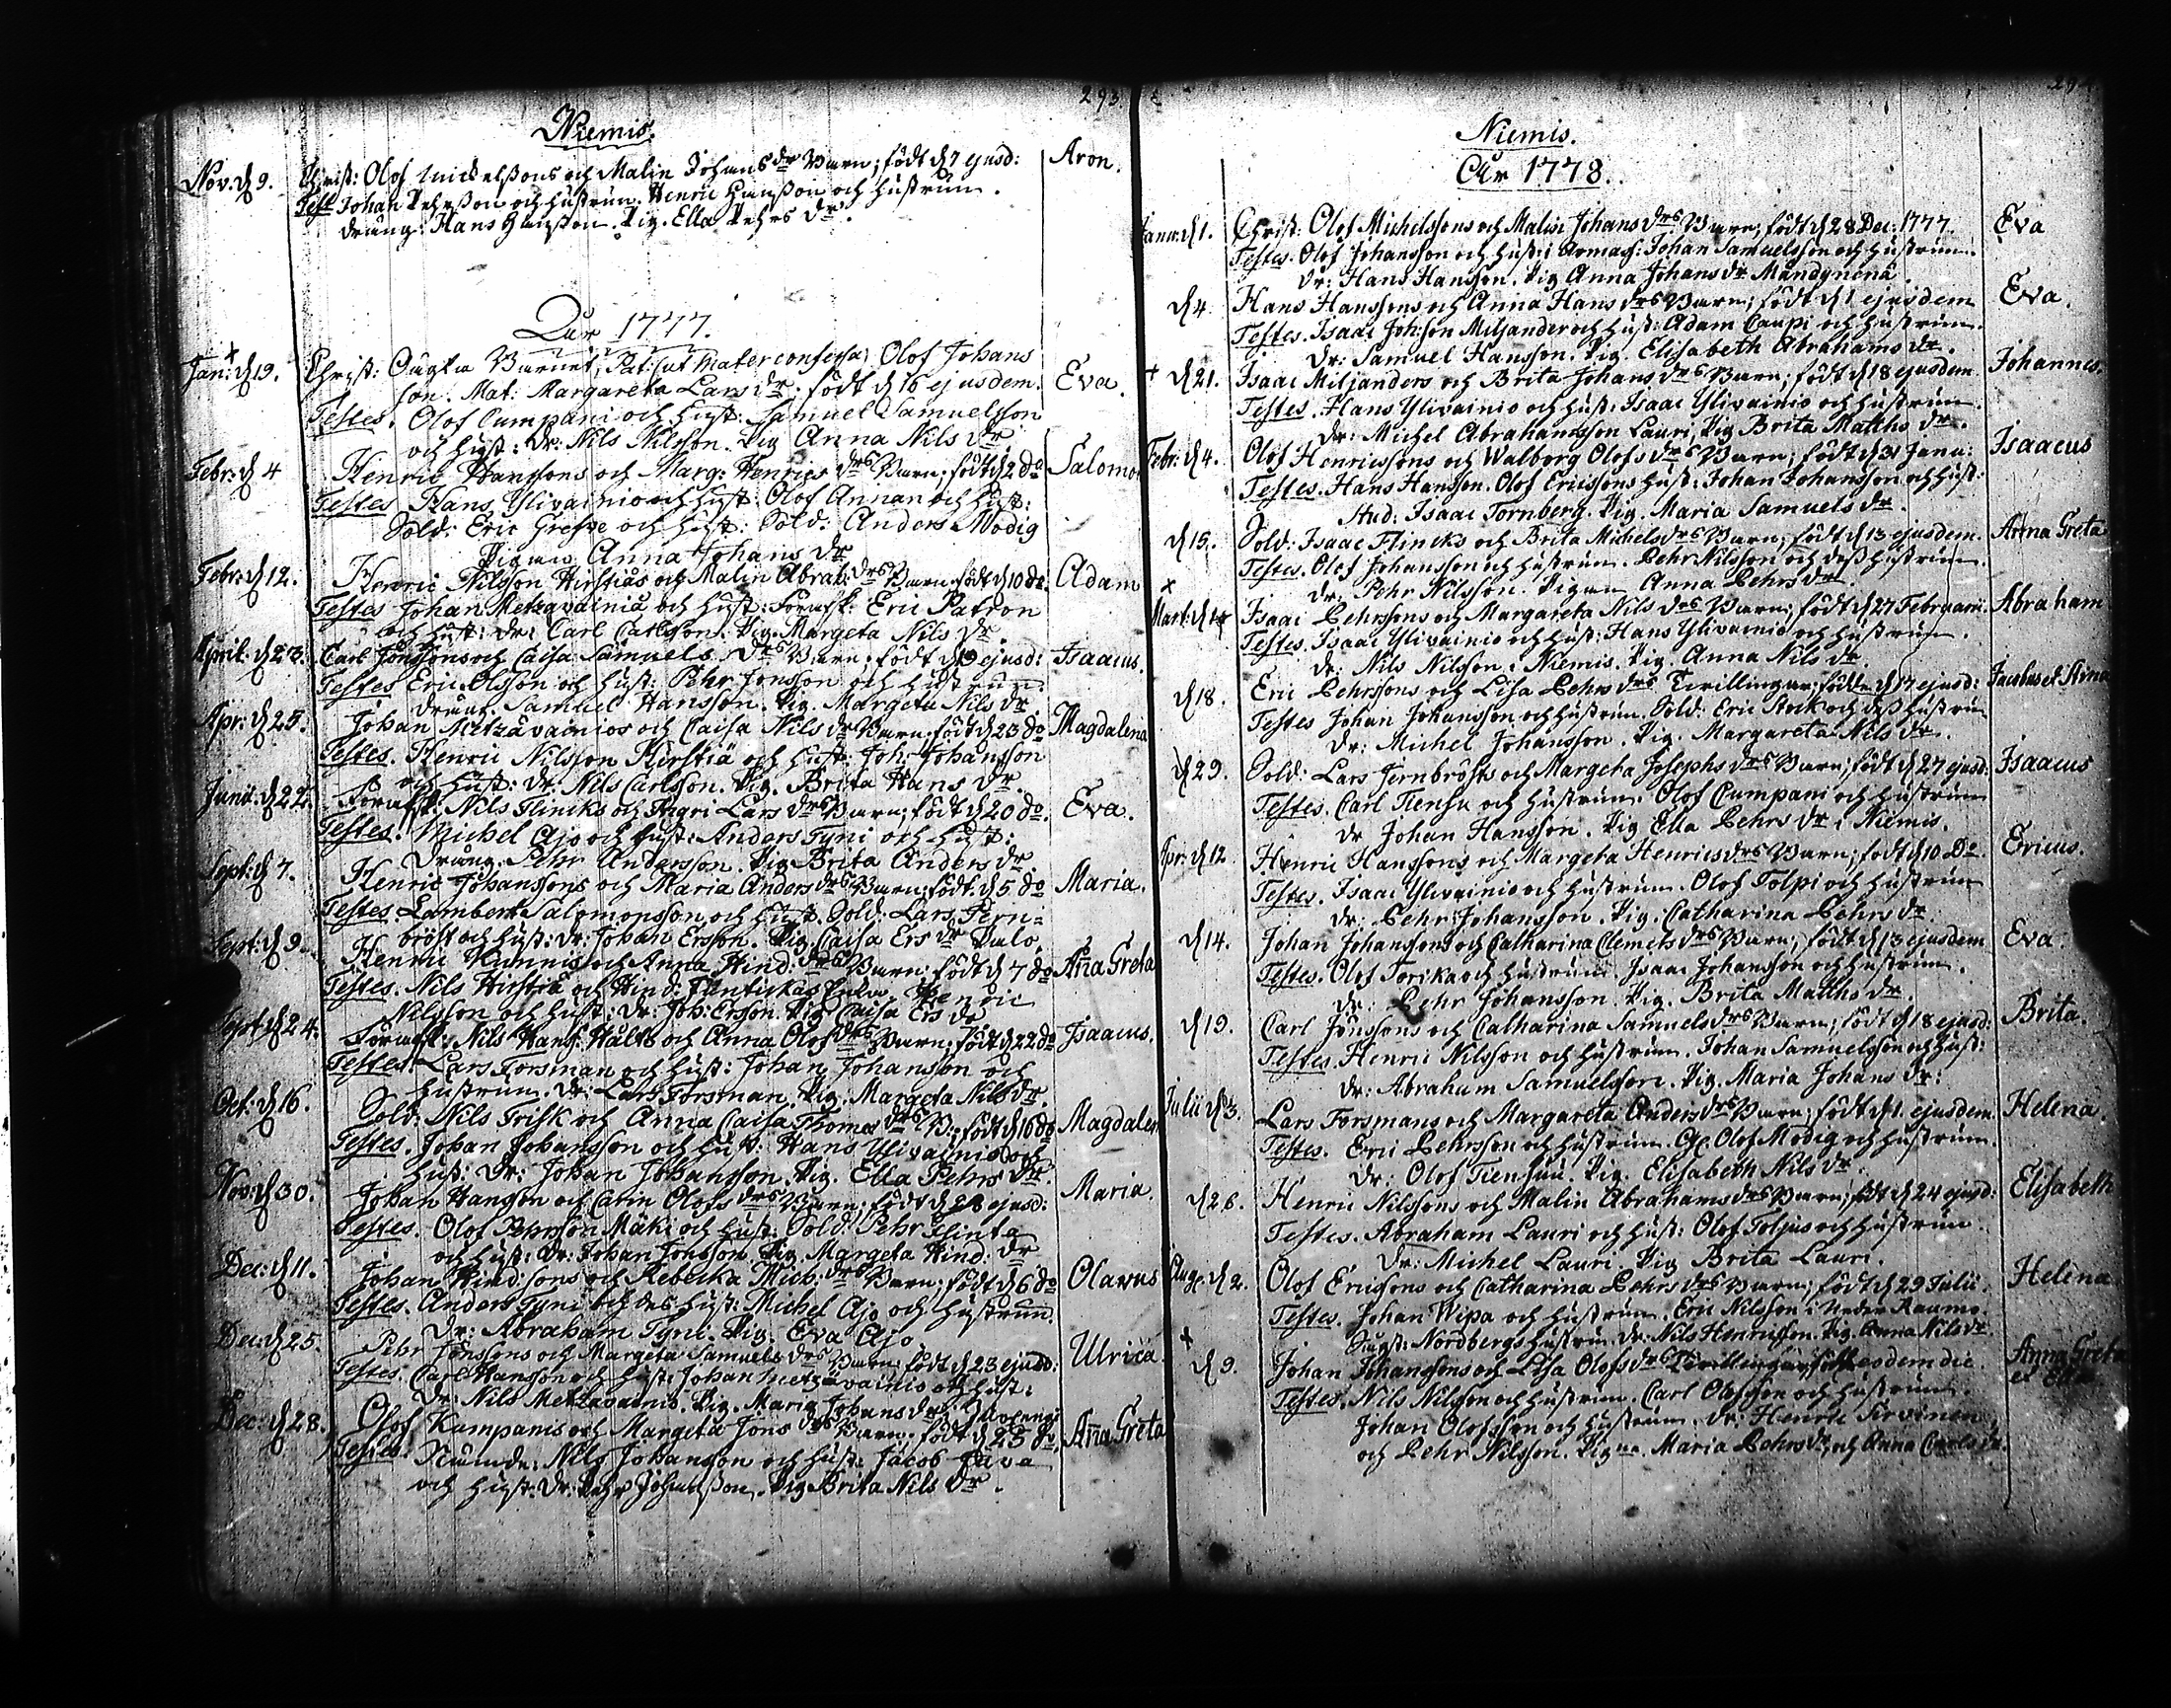 293.
Niemis.
Nov. d 9. Christ: Olof Mickelssons och Malin Johans dr Barn; födt d 7 ejusd: Aron.
Test Johan Pehrsson och hustrun. Henric Hansson och hustrun.
dräng: Hans Hansson. Pig. Ella Pehrs dr.
Åhr 1777.
Jan: d 19. Christ: Oägta Barnet, Pat: (ut mater confessa) Olof Johans Eva.
son. Mat: Margareta Lars dr. födt d 16 ejusdem.
Testes. Olof Cumpani och hust: Samuel Samuelsson
och hust: Dr: Nils Nilsson. Pig Anna Nils dr
Febr: d 4 Henric Hanssons och Marg: Henrics drs Barn; födt d 2 do Salomon
Testes Hans Ylivainio och hust: Olof Annan och hust:
Sold: Eric Grefve och hust: Sold: Anders Modig
Pigan Anna Johans dr
Febr: d 12. Henric Nilsson Hirstiäs och Malin Abrah: drs Barn. födt d 10 do. Adam
Testes Johan Metzavainiå och hust: Eric Patron
och hust: dr: Carl Carlsson. Pig. Margeta Nils dr.
April: d 23. Carl Jönssons och Caisa Samuels drs Barn. födt d ejusd: Isaacus.
Testes Eric Olsson och hust: Pehr Jonsson och hustrun.
dräng. Samuel Hansson. Pig. Margeta Nils dr.
Apr: d 25. Johan Metzävainios och Caisa Nils dr Barn. födt d 23 do Magdalena
Testes. Henric Nilsson Hirstiä och hust: Joh: Johansson
och hust: dr: Nils Carlsson. Pig. Brita Hans dr.
Junii: d 22. Nils Flinks och Ingri Lars drs Barn; födt d 20 do. Eva.
Testes. Michel Ajo och hust: Anders Tyni och hust:
Dräng. Pehr Andersson. Pig. Brita Anders dr
Sept: d 7. Henric Johanssons och Maria Anders drs Barn; födt. d 5 do Maria.
Testes Lambert Salomonsson och hust. Sold: Lars Jern=
bröst och hust: dr: Johan Ersson. Pig. Caisa Ers dr Palo.
Sept: d 9. Henric och Anna Hind: drs Barn; födt d 7 do Anna Greta
Testes. Nils Hirstiä och Hind: Henric
Nilsson och hust: Dr: Joh: Ersson. Pig Caisa Ers dr
Sept: d 24. Nils Hans: Hälts och Anna Olofs drs Barn; födt d 22 do Isaacus.
Testes Lars Forsman och hust: Johan Johansson och
hustrun. Dr: Lars Forsman. Pig. Margeta Nils dr.
Oct: d 16. Sold: Nils Frisk och Anna Caisa Thomas drs B.; födt d 16 do Magdalena
Testes. Johan Johansson och hust. Hans Ylivainio och
hust: Dr: Johan Johansson. Pig. Ella Pehrs dr.
Nov: d 30. Johan Hansson och Carin Olofs drs Barn; födt d 28 ejusd: Maria.
Testes. Olof Pehrsson Mäki och hust: Sold: Pehr Flinta
och hust: Dr: Johan Jonsson Pig. Margeta Hind: dr
Dec: d 11. Johan Hind:sons och Rebecka Mich: drs Barn; födt d 6 do Olavus
Testes. Anders Tyni och des hust: Michel Ajo och hustrun.
Dr: Abraham Tyni. Pig. Eva Ajo
Dec: d 25. Pehr Jönssons och Margeta Samuels drs Barn; födt d 23 ejusd: Ulrica.
Testes. Carl Hansson och hust: Johan Metzävainio och hust:
Dr: Nils Metzävainio. Pig. Maria Johans dr.
Dec: d 28. Olof Kumpanis och Margeta Jöns drs Barn. födt d 25 do. Anna Greta
Testes: Nämdm: Nils Johansson och hust: Jacob
och hust: Dr: Pehr Johansson. Pig Brita Nils dr.
Niemis.
Åhr 1778.
Janu: d 1. Christ: Olof Michelssons och Malin Johans drs Barn; födt d 28 Dec: 1777. Eva
Testes. Olof Johansson och hust: i Armas: Johan Samuelsson och hustrun.
Dr: Hans Hansson. Pig Anna Johans dr
d 4. Hans Hanssons och Anna Hans drs Barn; födt d 1 ejusdem Eva.
Testes. Isaac Joh:son Miljander och hust: Adam Caupi och hustrun.
Dr: Samuel Hansson. Pig. Elisabeth Abrahams dr.
+ d 21. Isaac Miljanders och Brita Johans drs Barn; födt d 18 ejusdem. Johannes.
Testes. Hans Ylivainio och hust: Isaac Ylivainio och hustrun.
Dr: Michel Abrahamsson Lauri, Pig Brita Matths dr.
Febr: d 4. Olof Henricssons och Walborg Olofs drs Barn; födt d 31 Janu: Isaacus
Testes. Hans Hansson. Olof Ericssons hust: Johan Johansson och hust:
Stud: Isaac Tornberg. Pig. Maria Samuels dr
d 15. Sold: Isaac Flincks och Brita Michels drs Barn; födt d 13 ejusdem. Anna Greta
Testes. Olof Johansson och hustrun. Pehr Nilsson och dess hustrun.
dr: Pehr Nilsson. Pigan Anna Pehrs dr.
+
Mart: d 1 Isaac Pehrssons och Margareta Nils drs Barn; födt d 27 Februarii. Abraham
Testes. Isaac Ylivainio och hust: Hans Ylivainio och hustrun.
dr: Nils Nilsson i Niemis. Pig. Anna Nils dr.
d 18. Eric Pehrssons och Lisa Pehrs drs Tvillingar; födde d 17 ejusd: Jacobus et Stina
Testes Johan Johansson och hustrun. Sold: Eric Rock och dess hustrun
Dr: Michel Johansson. Pig. Margareta Nils dr.
d 29. Sold: Lars Jernbrösts och Margeta Josephs drs Barn; födt d 27 ejusd: Isaacus
Testes. Carl Tiensu och hustrun. Olof Cumpani och hustrun
dr Johan Hansson. Pig Ella Pehrs dr i Niemis.
Apr: d 12. Henric Hanssons och Margeta Henrics drs Barn; födt d 10 Do. Ericus.
Testes. Isaac Ylivainio och hustrun. Olof Tolpi och hustrun
dr: Pehr Johansson. Pig. Catharina Pehrs dr
d 14. Johan Johanssons och Catharina Clemets drs Barn; födt d 13 ejusdem Eva.
Testes. Olof Torika och hustrun. Isaac Johansson och hustrun.
Dr: Pehr Johansson. Pig. Brita Matths dr.
d 19. Carl Jönssons och Catharina Samuels drs Barn; födt d 18 ejusd: Brita.
Testes. Henric Nilsson och hustrun. Johan Samuelsson och hust:
Dr: Abraham Samuelsson. Pig. Maria Johans dr:
Julii d 3. Lars Forsmans och Margareta Anders drs Barn; födt d 1. ejusdem. Helena.
Testes. Eric Pehrsson och hustrun. Olof Modig och hustrun.
Dr: Olof Tiensuu. Pig. Elisabeth Nils dr.
d 26. Henric Nilssons och Malin Abrahams drs Barn; födt d 24 ejusd: Elisabeth
Testes. Abraham Lauri och hust: Olof Toljus och hustrun.
Dr: Michel Lauri. Pig Brita Lauri.
Aug: d 2. Olof Ericsons och Catharina Pehrs drs Barn; födt d 29 Julii. Helena
Testes. Johan Wipa och hustrun. Eric Nilsson i Neder Raumo.
Nordbergs hustru. Dr: Nils Henricsson. Pig. Anna Nils dr
+
d 9. Johan Johanssons och Lisa Olofs drs Tvillingar, eodem die. Anna Greta
et Ella
Testes. Nils Nilsson och hustrun. Carl Olofsson och hustrun.
Johan Olofsson och hustrun. dr: Henric Sirvinen
och Pehr Nilsson. Pigne. Maria Pehrs dr, och Anna Carls dr.